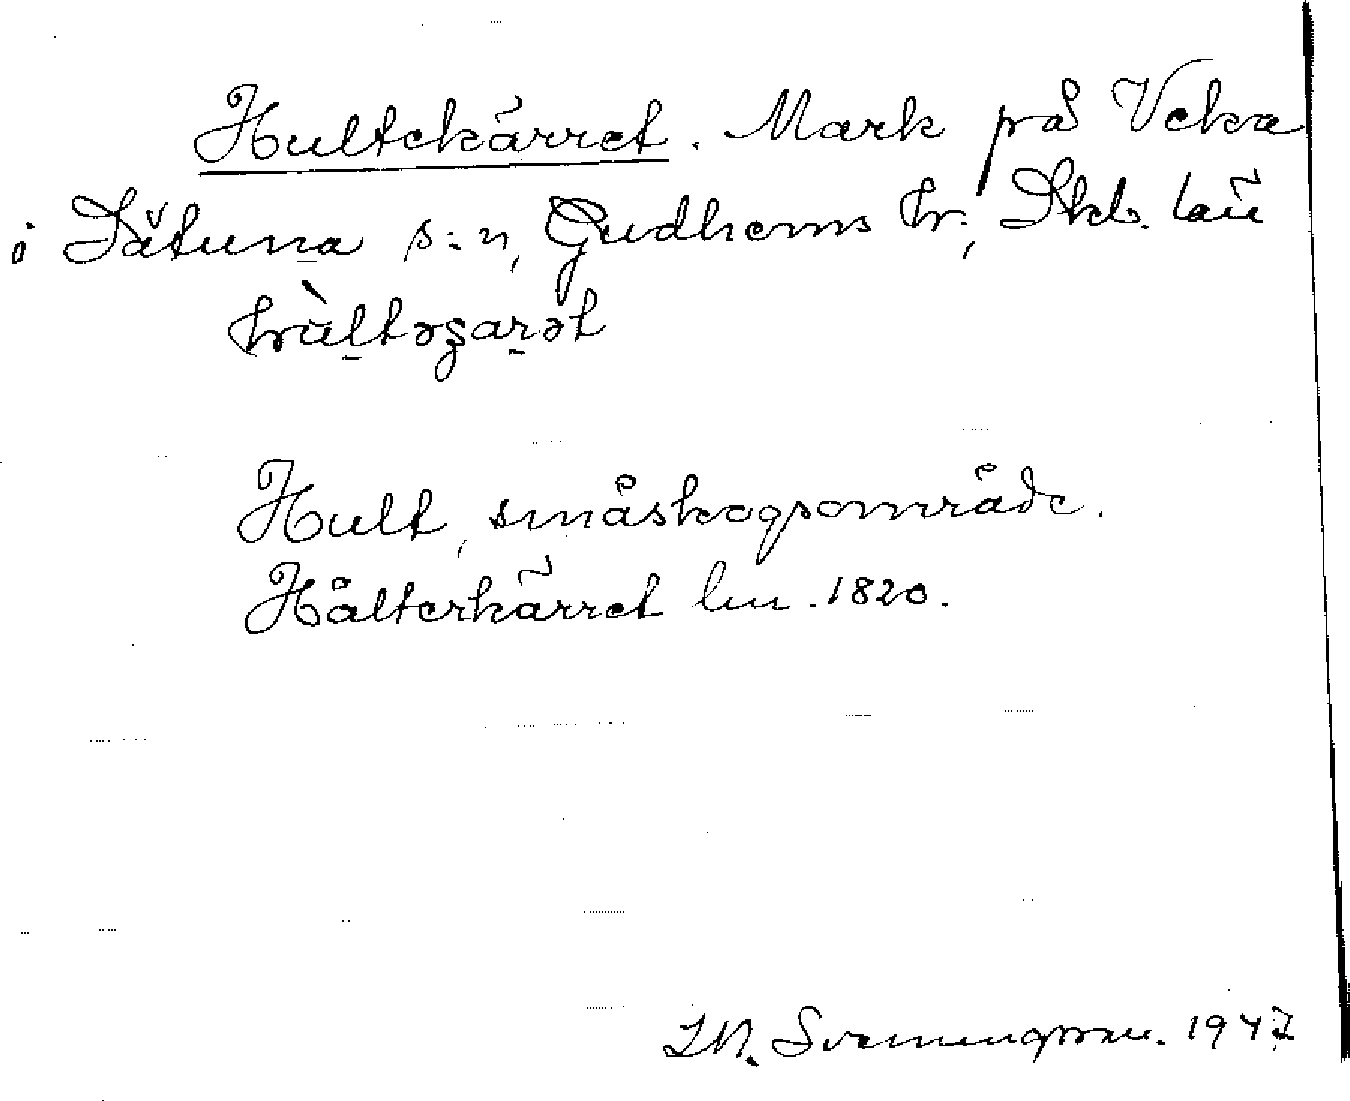 Hultekärret. Mark på Veka
i Dätuna s:n, Gudhems hr., Skb. län
hùltəʒarət
Hult, småskogsområde.
Hålterkärret lm. 1820.
Svenningsson. 1947